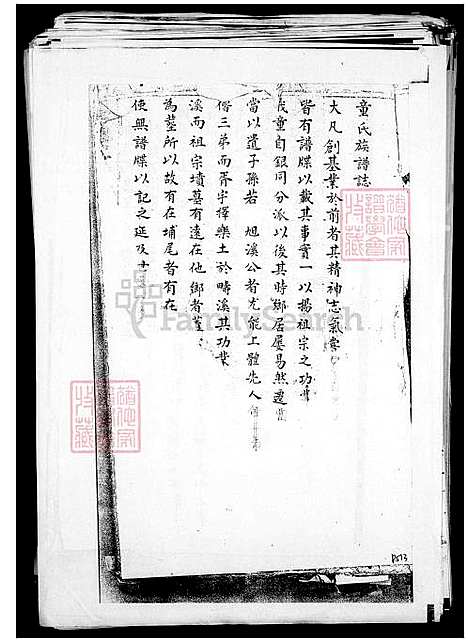 童氏族譜誌
大凡創基業於前者其精神志氣
皆有譜牒以載其事實一以揚祖宗之功
我童自銀同分派以後其時鄉居屢易然遷
當以遺子孫若 旭溪公者尤能上體先人
偕三弟而胥宇擇樂土於疇溪其功業
溪而祖宗墳墓有遠在他鄉者
為塋所以故有在埔尾者有在
使無譜牒以記之延及
FamilySearch